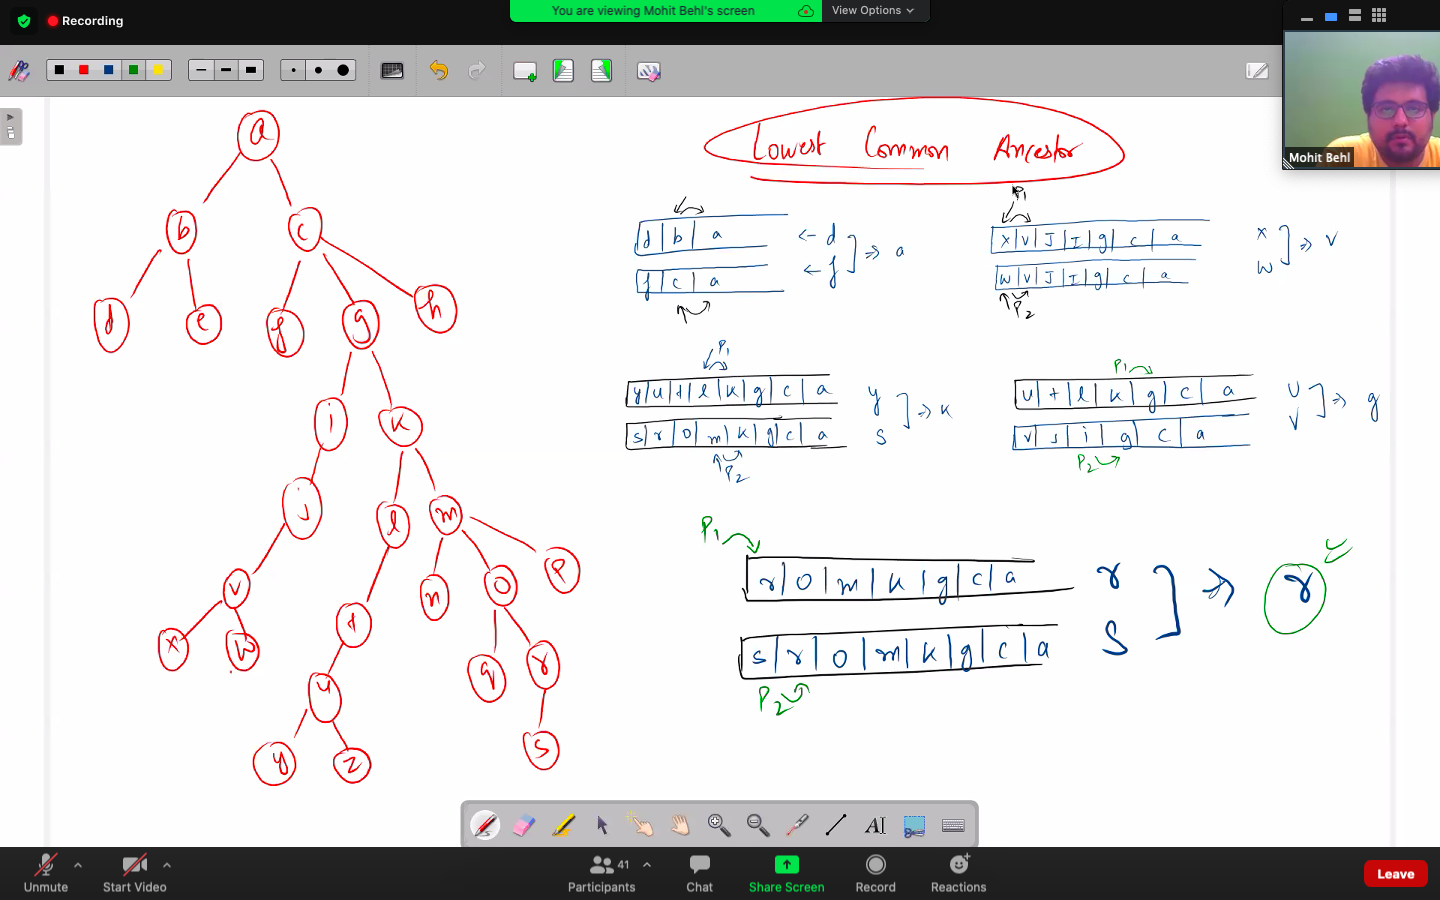 Recording
You are viewing Mohit Behl's screen
View Options
Mohit Behl
Lowest Common Ancestor
a
b c
d e f g h
i k
j l m
v t n o p
x w u q r
y z s
d | b | a ← d
f | c | a ← f
⇒ a
P1
x | v | J | I | g | c | a x
w | v | J | I | g | c | a w
P2
⇒ v
P1
y | u | t | l | k | g | c | a y
s | r | o | m | k | g | c | a s
P2
⇒ k
P1
u | t | l | k | g | c | a u
v | j | i | g | c | a v
P2
⇒ g
P1
r | o | m | k | g | c | a r
s | r | o | m | k | g | c | a s
P2
⇒ r
AI
Unmute
Start Video
Participants
41
Chat
Share Screen
Record
Reactions
Leave